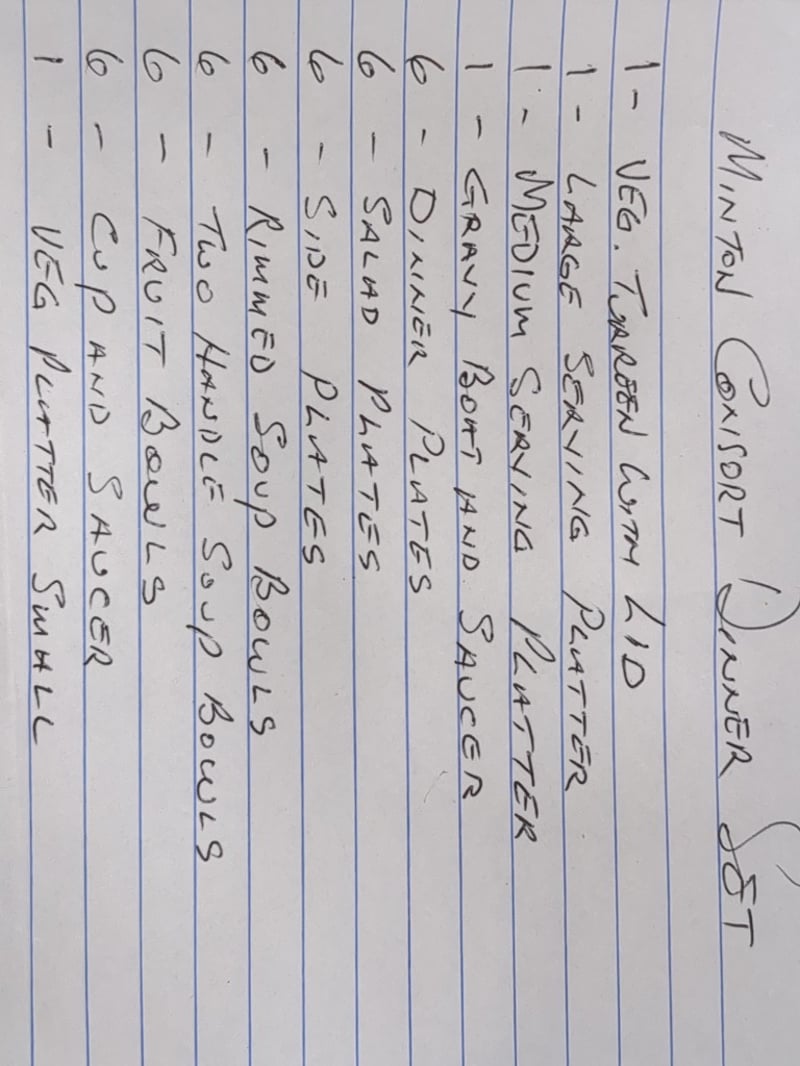 MINTON CONSORT DINNER SET
1 - VEG. TUREEN WITH LID
1 - LARGE SERVING PLATTER
1 - MEDIUM SERVING PLATTER
1 - GRAVY BOAT AND SAUCER
6 - DINNER PLATES
6 - SALAD PLATES
6 - SIDE PLATES
6 - RIMMED SOUP BOWLS
6 - TWO HANDLE SOUP BOWLS
6 - FRUIT BOWLS
6 - CUP AND SAUCER
1 - VEG PLATTER SMALL